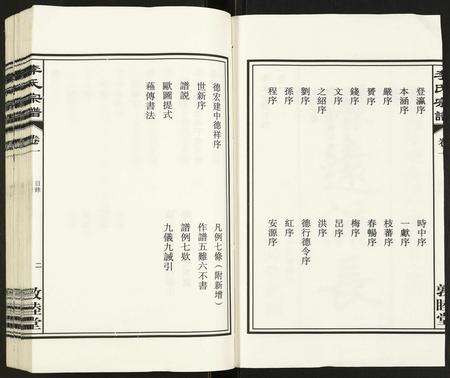 李氏宗譜
卷一
登瀛序
本涵序
嚴序
贇序
錢序
文序
之紹序
劉序
孫序
程序
時中序
一獻序
枝蕃序
春暢序
梅序
呂序
洪序
德行德令序
紅序
安源序
敦睦堂
德宏建中德祥序
世新序
譜説
歐圖提式
蘓傳書法
凡例七條（附新增）
作譜五難六不書
譜例七欵
九儀九誡引
李氏宗譜
卷一
目錄
二
敦睦堂